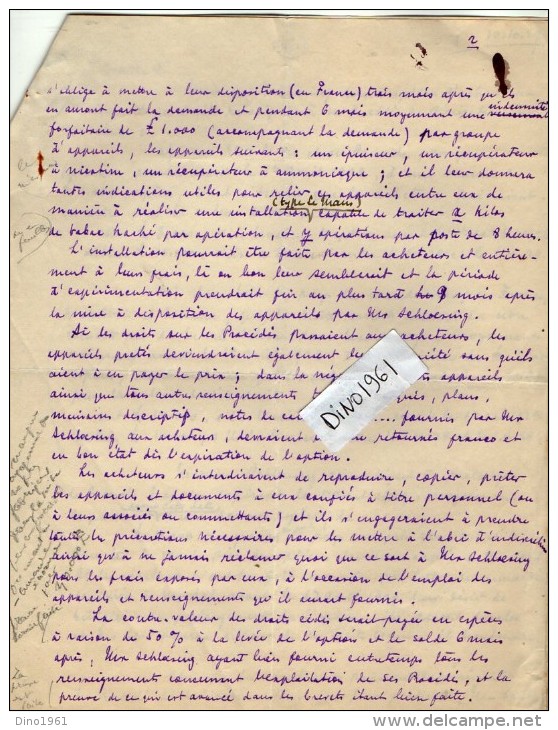 2
s'oblige à mettre à leur disposition (en France) trois mois après qu'ils
en auront fait la demande et pendant 6 mois moyennant une indemnité
forfaitaire de £ 1.000 (accompagnant la demande) par groupe
d'appareils, les appareils suivants : un épuiseur, un récupérateur
à nicotine, un récupérateur à ammoniaque ; et il leur donnera
toutes indications utiles pour relier ces appareils entre eux de
(type le Mans)
manière à réaliser une installation capable de traiter x kilos
de tabac haché par opération, et y opérations par poste de 8 heures.
L'installation pourrait être faite par les acheteurs et entière-
ment à leur frais, là où bon leur semblerait et la période
d'expérimentation prendrait fin au plus tard 9 mois après
la mise à disposition des appareils par Mr Schloesing.
Si les droits sur les Procédés passaient aux acheteurs, les
appareils prêtés deviendraient également leur propriété sans qu'ils
aient à en payer le prix ; dans la appareils
ainsi que tous autres renseignements plans,
mémoires descriptifs, notes de fournis par Mr
Schloesing aux acheteurs, devraient retournés franco et
en bon état dès l'expiration de l'option.
Les acheteurs s'interdiraient de reproduire, copier, prêter
les appareils et documents à eux confiés à titre personnel (ou
à leurs associés ou commettants) et ils s'engageraient à prendre
toutes les précautions nécessaires pour les mettre à l'abri d'indiscrétions
ainsi qu'à ne jamais réclamer quoi que ce soit à Mr Schloesing
pour les frais exposés par eux, à l'occasion de l'emploi des
appareils et renseignements qu'il aurait fournis.
La contre-valeur des droits cédés serait payée en espèces
à raison de 50% à la levée de l'option et le solde 6 mois
après, Mr Schloesing ayant bien fourni entretemps tous les
renseignements concernant l'exploitation de ses Procédés, et la
preuve de ce qui est avancé dans les brevets étant bien faite.
DINO1961
Dino1961
www.delcampe.net